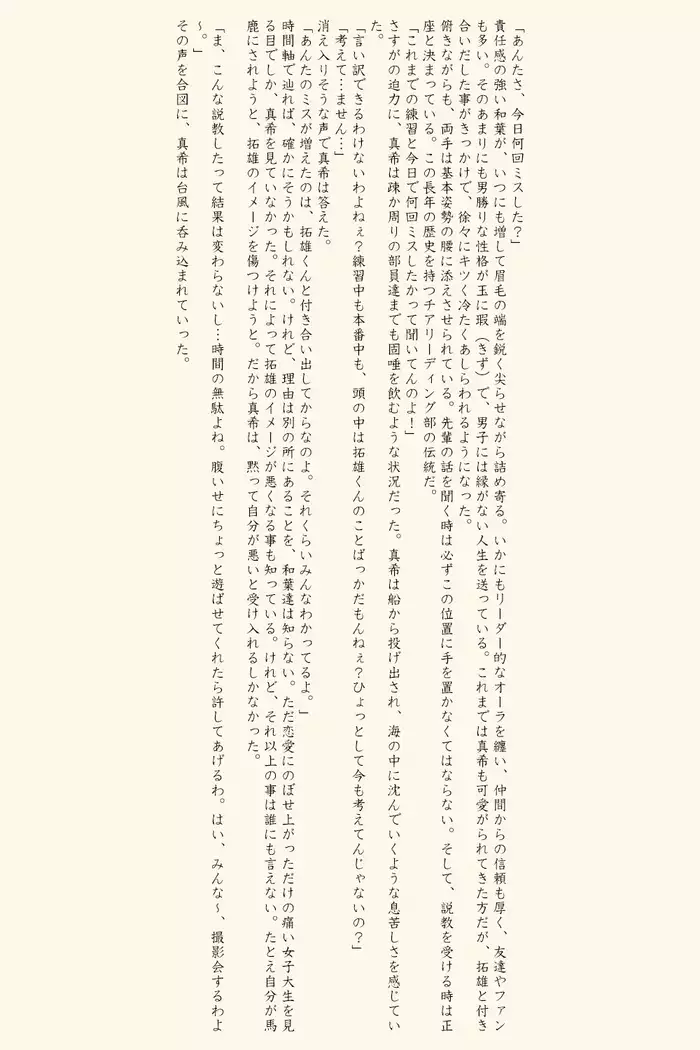 「あんたさ、今日何回ミスした？」
責任感の強い和葉が、いつにも増して眉毛の端を鋭く尖らせながら詰め寄る。いかにもリーダー的なオーラを纏い、仲間からの信頼も厚く、友達やファン
も多い。そのあまりにも男勝りな性格が玉に瑕（きず）で、男子には縁がない人生を送っている。これまでは真希も可愛がられてきた方だが、拓雄と付き
合いだした事がきっかけで、徐々にキツく冷たくあしらわれるようになった。
俯きながらも、両手は基本姿勢の腰に添えさせられている。先輩の話を聞く時は必ずこの位置に手を置かなくてはならない。そして、説教を受ける時は正
座と決まっている。この長年の歴史を持つチアリーディング部の伝統だ。
「これまでの練習と今日で何回ミスしたかって聞いてんのよ！」
さすがの迫力に、真希は疎か周りの部員達までも固唾を飲むような状況だった。真希は船から投げ出され、海の中に沈んでいくような息苦しさを感じてい
た。
「言い訳できるわけないわよねぇ？練習中も本番中も、頭の中は拓雄くんのことばっかだもんねぇ？ひょっとして今も考えてんじゃないの？」
「考えて…ません…」
消え入りそうな声で真希は答えた。
「あんたのミスが増えたのは、拓雄くんと付き合い出してからなのよ。それくらいみんなわかってるよ。」
時間軸で辿れば、確かにそうかもしれない。けれど、理由は別の所にあることを、和葉達は知らない。ただ恋愛にのぼせ上がっただけの痛い女子大生を見
る目でしか、真希を見ていなかった。それによって拓雄のイメージが悪くなる事も知っている。けれど、それ以上の事は誰にも言えない。たとえ自分が馬
鹿にされようと、拓雄のイメージを傷つけようと。だから真希は、黙って自分が悪いと受け入れるしかなかった。
「ま、こんな説教したって結果は変わらないし…時間の無駄よね。腹いせにちょっと遊ばせてくれたら許してあげるわ。はい、みんな〜、撮影会するわよ
〜。」
その声を合図に、真希は台風に呑み込まれていった。